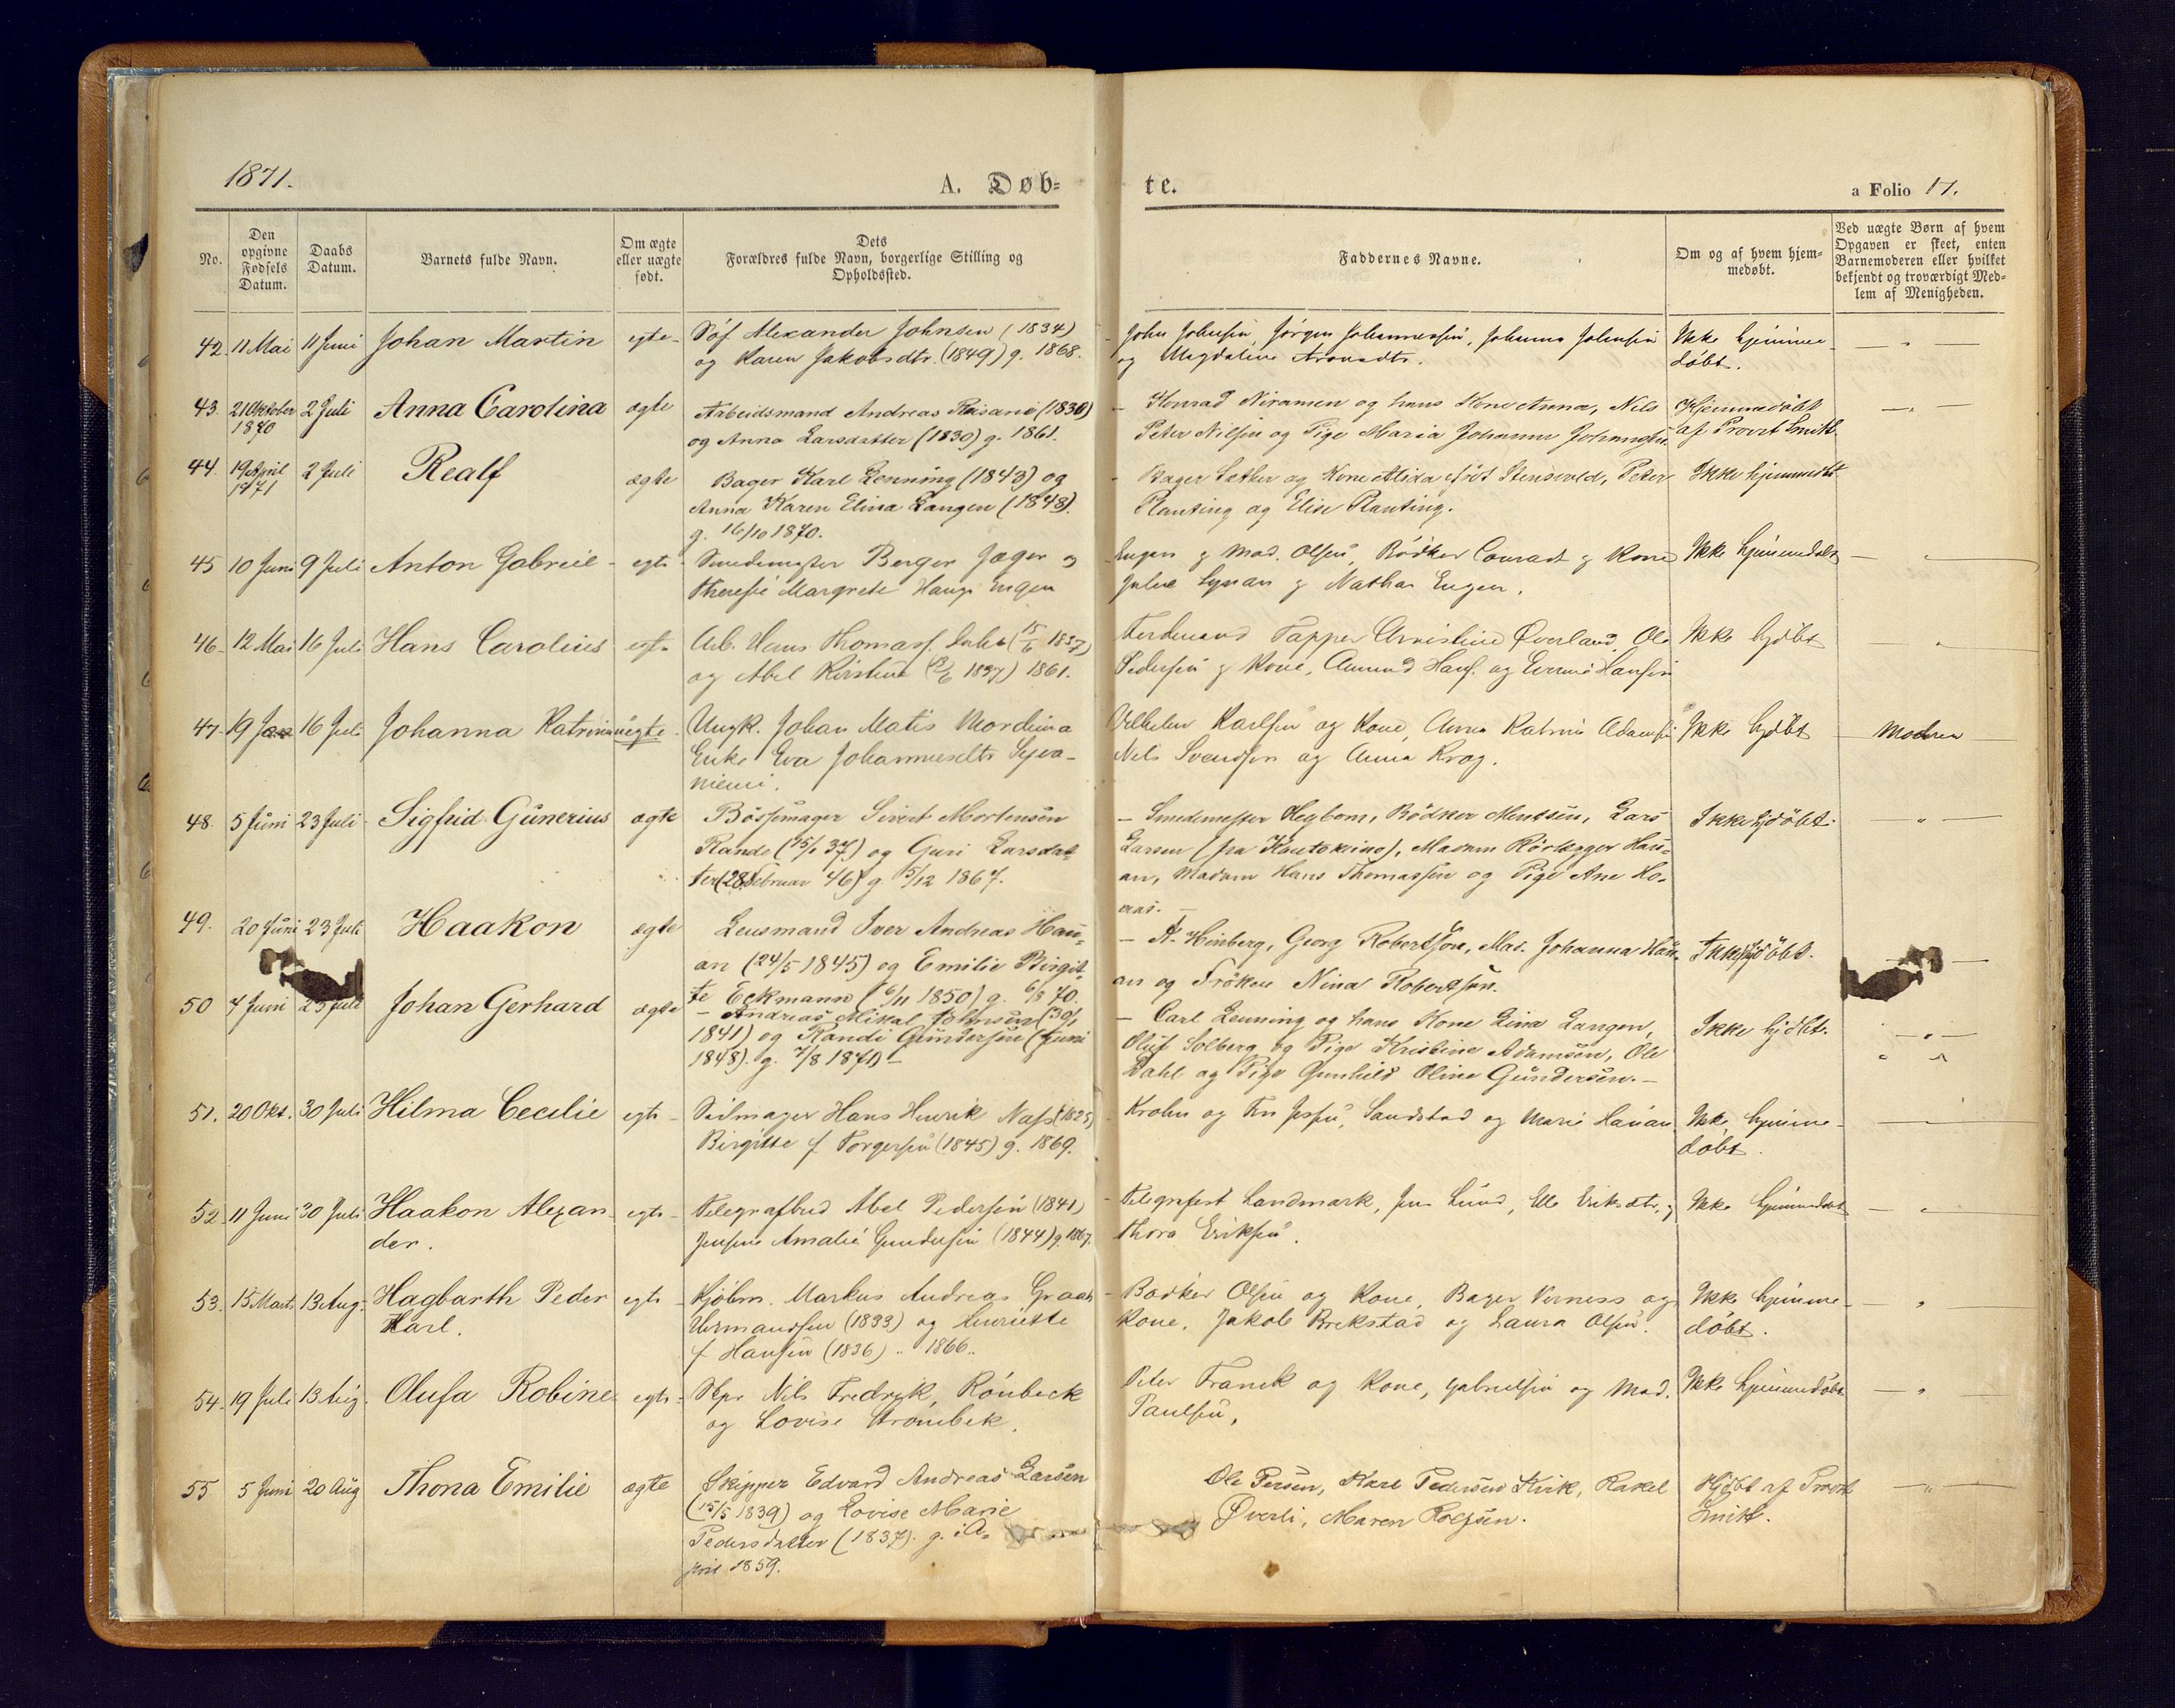 1871.
A. Døb-
te.
a Folio 17.
No.
Den
opgivne
Fødsels
Datum.
Daabs
Datum.
Barnets fulde Navn.
Om ægte
eller uægte
født.
Dets
Forældres fulde Navn, borgerlige Stilling og
Opholdssted.
Faddernes Navne.
Om og af hvem hjem-
medøbt.
Ved uægte Børn af hvem
Opgaven er skeet, enten
Barnemoderen eller hvilket
bekjendt og troværdigt Med-
lem af Menigheden.
42. 11 Mai 11 Juni Johan Martin egte
Alexander Johnsen (1834)
og Karen Jakobsdtr. (1849) g. 1868.
John Johnsen, Jørgen Johannessen, Johanna Johnsen
og Magdalina
Ikke hjemme-
døbt.
43. 21 Oktober 2 Juli Anna Carolina ægte
1870
Arbeidsmand Andreas Raisanie (1830)
og Anna Larsdatter (1830) g. 1861.
Konrad Niramen og hans Kone Anna, Nils
Peter Nilsen og Pige Maria Johanna
Hjemmedøbt
af Provst Smith
44. 19 April 2 Juli Realf ægte
1871
Bager Karl Lenning (1843) og
Anna Karen Elina Langen (1848).
g. 16/10 1870.
Bager og Kone Alida født Stensvold, Peter
Planting og Elise Planting.
Ikke hjemmedbt.
45 10 Juni 9 Juli Anton Gabriel egte
Smedemester Berger Jæger og
Margrete Haugs Engen
Engen g Mad. Olsen, Bødker Conradt g Kone
g Nathan Engen.
Ikke hjemmedøbt
46 12 Mai 16 Juli Hans Carolius egte
Arb. Hans Thomass. (15/6 1837)
og Abel Kirstine 1837) 1861.
Ferdinand Tapper Christine Øverland, Ole
Pedersen g Kone, Amund Hans. og Hansen
Ikke hjdøbt
47. 19 Jan 16 Juli Johanna Katrina uægte
Ungk. Johan Matis Mordima
Enke Eva Johannesdtr
niemi.
Vilhelm Karlsen og Kone, Anna Katrine Adamsen
Nels Svendsen og Anna Krog.
Ikke hjdøbt
Modren
48. 5 Juni 23 Juli Sigfrid Gunerius ægte
Bøssemager Sivert Mortensen
Rande (15/1 37) og Guri Larsdat-
ter (28 Februar 46) g. 5/12 1867.
Smedemester Hegbom, Bødker Mentsen, Lars
Larsen (fra Kautokeino), Madam Rørlægger Hau-
an, Madam Hans Thomassen og Pige Ane Ho-
aas.
Ikke hjdøbt.
49. 20 Juni 23 Juli Haakon ægte
Lensmand Iver Andreas Hau-
an (24/5 1845) og Emilie Birgit-
te Eckmann (6/11 1850) g. 6/8 70.
A. Hinberg, Georg Robertson, Mad. Johanna Hau-
an og Frøken Nina Robertson.
Ikke hjdøbt.
50 4 Juni 23 Juli Johan Gerhard ægte
Andreas Mikal Johnsen (30/1
1841) og Randi Gundersen (Juni
1848). g. 7/8 1870
Carl Lenning og hans Kone Lina Langen,
Oluf Solberg og Pige Kristine Adamsen, Ole
Dahl og Pige Gunhild Oline Gundersen.
Ikke hjdbt.
51. 20 Okt. 30 Juli Hilma Cecilie egte
Seilmager Hans Henrik Næss (1825)
Birgitte f. Torgersen (1845) g. 1869.
Krohn og Sandstad og Marie Hauan
Ikke hjemme-
døbt.
52 11 Juni 30 Juli Haakon Alexan- egte
der.
Telegrafbud Abel Pedersen (1841)
Jensine Amalie Gundersen (1844) g. 1867.
Telegrafist Landmark, Jens Lund, Elle Eriksdtr. g
Thora Eriksen.
Ikke hjemmedøbt
53. 15 Marts 13 Aug. Hagbarth Peder egte
Karl.
Kjøbm. Markus Andreas Graah
Urmandsen (1833) og Henriette
f Hansen (1836) " 1866.
Bødker Olsen og Kone, Bager Verness og
Kone, Jakob Brekstad og Laura Olsen.
Ikke hjemme-
døbt.
54. 19 Juli 13 Aug. Olufa Robine egte
Skpr Nils Fredrik Rønbeck
og Lovise Strømbek.
Peter Franck og Kone, Gabrielsen og Mad.
Paulsen,
Ikke hjemmedøbt
55 5 Juni 20 Aug Thona Emilie ægte
Skipper Edvard Andreas Larsen
(15/5 1839) og Lovise Marie
Pedersdatter (1837). g. i A-
pril 1859.
Ole Persen, Karl Pedersen Kirk, Rakel
Øverli, Maren
Hjdbt af Provst
Smith.